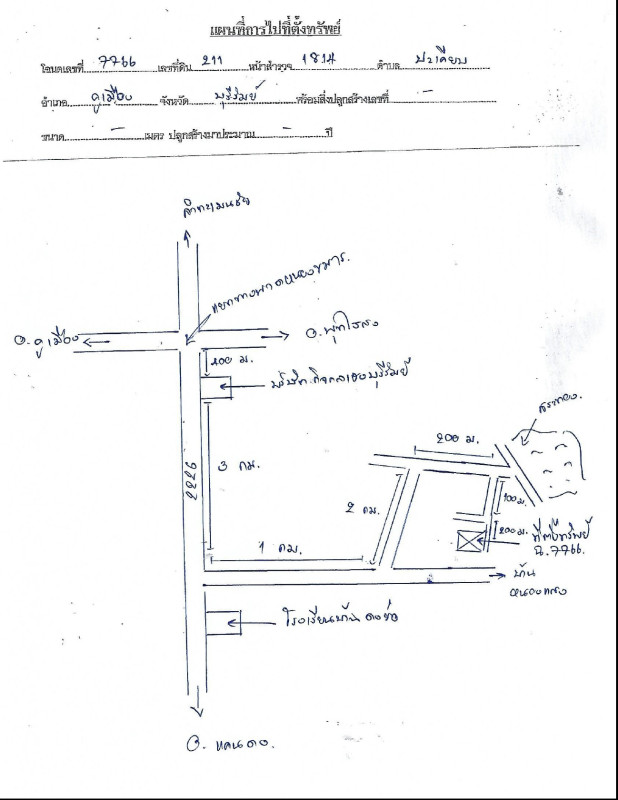 แผนที่การไปที่ตั้งทรัพย์
โฉนดเลขที่ 7766 เลขที่ดิน 211 หน้าสำรวจ 1814 ตำบล ปะเคียบ
อำเภอ คูเมือง จังหวัด บุรีรัมย์ พร้อมสิ่งปลูกสร้างเลขที่ -
ขนาด - เมตร ปลูกสร้างมาประมาณ - ปี
ลำทะเมนชัย
แยกทางพาด
อ. คูเมือง
อ. พุทไธสง
400 ม.
บุรีรัมย์
สระทอง.
200 ม.
3 กม.
2 กม.
100 ม.
200 ม.
ที่ตั้งทรัพย์
ฉ. 7766.
1 กม.
บ้าน
โรงเรียนบ้าน
อ. แคนดง